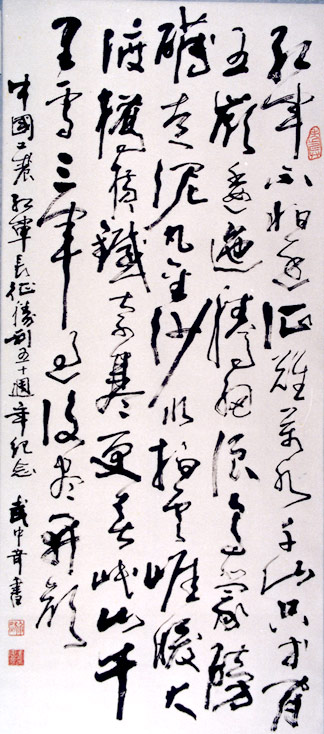 紅軍不怕遠征難萬水千山只等閒
五嶺逶迤騰細浪烏蒙磅
礴走泥丸金沙水拍雲崖暖大
渡橋橫鐵索寒更喜岷山千
里雪三軍過後盡開顏
中國工農紅軍長征勝利五十週年紀念 武中奇書